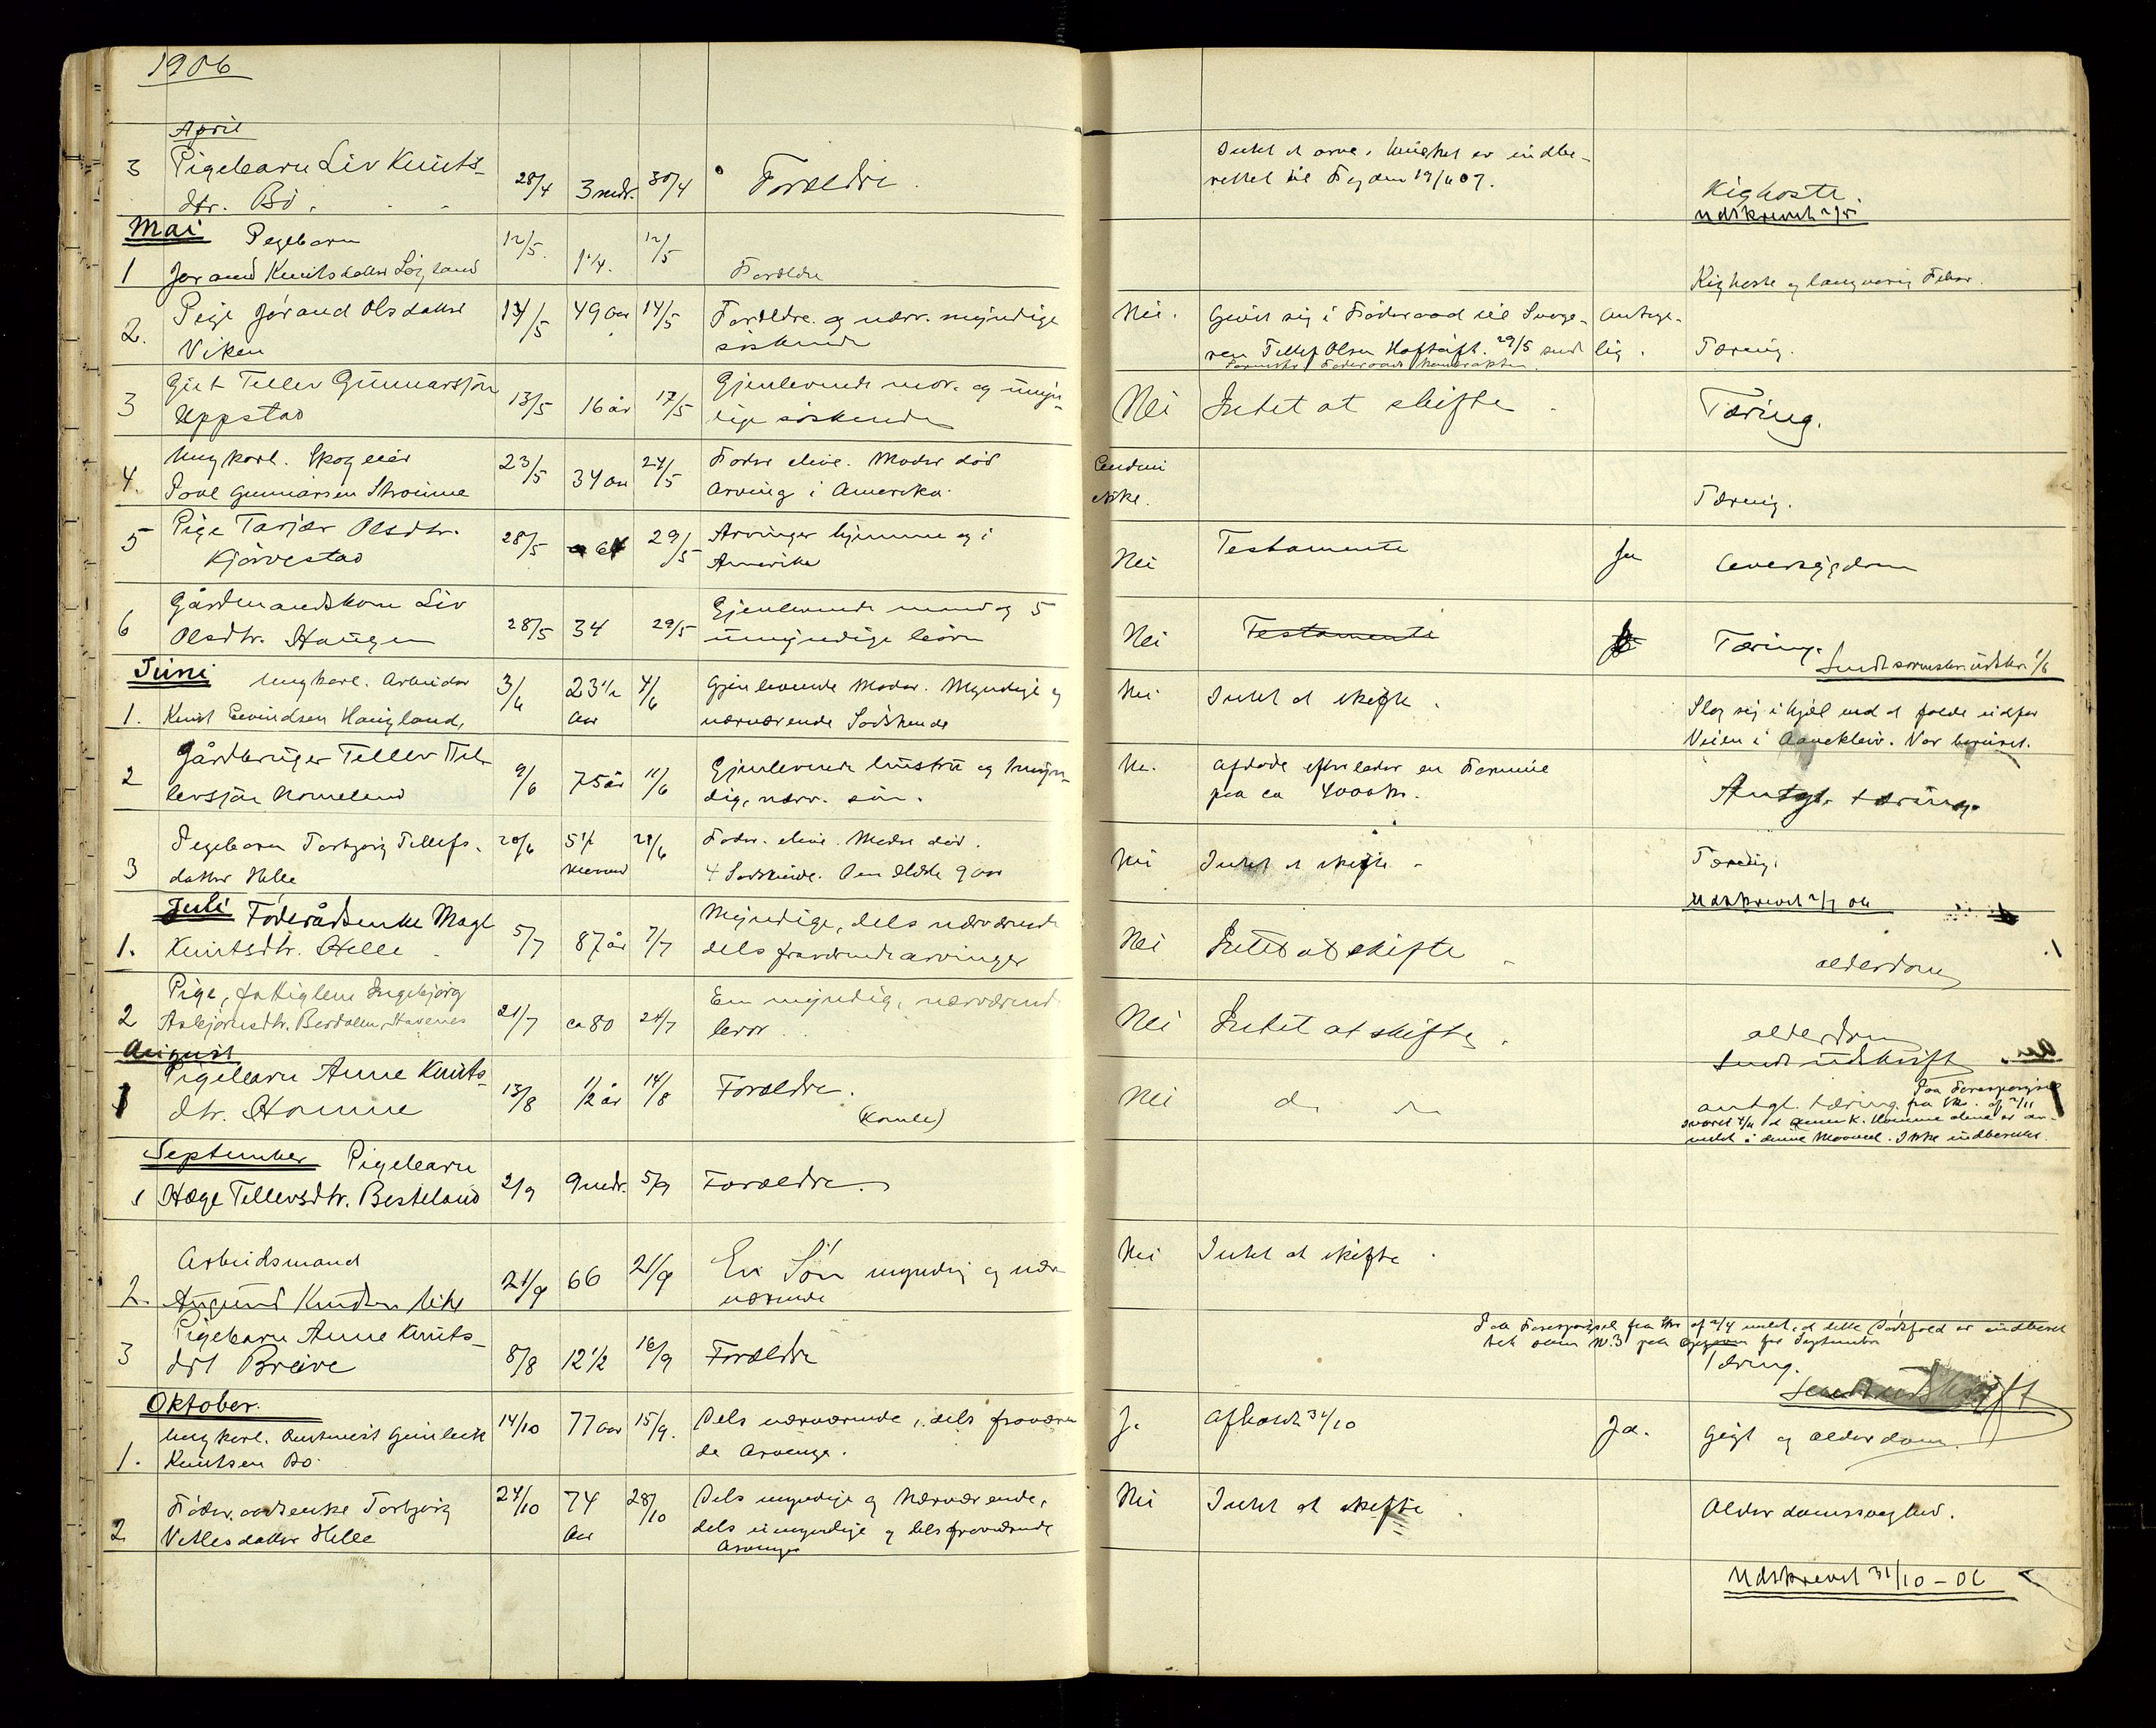 1906
April
3 Pigebarn Liv Knuts-
dtr. Bö. 28/4 3 mdr. 30/4 Forældre.
Intet at arve, hvilket er indbe-
rettet til
Kighoste
Udskrevet
Mai Pigebarn
1 Joraand Knutsdatter 12/5 1 1/4. 12/5 Forældre
Kighoste og langvarig Feber.
2. Pige Jórand Olsdatter 14/5 49 Aar 14/5 Forældre og nærv. myndige
Viken söskende
Nei. Givet sig i Föderaad til Svoge-
ren Tellef Olsen 29/5 sendt
Antage-
lig.
Tæring.
3 Gut Tellev Gunnarssön 13/5 16 år 17/5 Gjenlevende mor og umyn-
Uppstad dige söskende
Nei Intet at skifte. Tæring.
4. Ungkarl. Skogeier 23/5 34 Aar 24/5 Fader elive. Moder död
Povl Gunnarsen Straume Arving i Amerika.
Endnu
ikke. Tæring.
5 Pige Tarjær Olsdtr. 28/5 64 29/5 Arvinger hjemme og i
Kjörvestad Amerika
Nei Testamente Ja Leversygdom
6 Gårdmandskone Liv 28/5 34 29/5 Gjenlevende mand og 5
Olsdtr. Haugen umyndige börn
Nei Testamente Tæring.
Sendt sorenskr. udskr. 1/6
Juni Ungkarl. Arbeider 3/6 23 1/2 Aar 4/6 Gjenlevende Moder. Myndige og
1. Knut Eivindsen Haugland, nærværende Södskende
Nei Intet at skifte.
Slog sig ihjel ved at falde udfor
Veien i Var beruset.
2 Gårdbruger Tellev Tel- 9/6 75 år 11/6 Gjenlevende hustru og 1 myn-
levssön Homeland dig, nærv. sön.
Nei. Afdöde efterlader en Formue
paa ca 4000 kr.
Antgl. tæring.
3 Pigebarn Torbjorg Tellefs- 20/6 5 1/2 28/6 Fader elive. Moder död.
datter Helle 4 Södskende. Den ældste 9 Aar
Nei Intet at skifte Tæring.
Udskrevet 2/7 06
Juli Föderådsenke Magl 5/7 87 år 7/7 Myndige, dels nærværende
1. Knutsdtr. Helle dels fraværende arvinger
Nei Intet at skifte alderdom
2 Pige, fattiglem Ingebjörg 21/7 ca 80 24/7 En myndig, nærværende
Asbjörnsdtr. bror
Nei Intet at skifte. alderdom
Sendt udskrift
August
1 Pigebarn Anne Knuts- 13/8 1/2 år 14/8 Forældre.
dtr. Homme
Nei do do
antgl. tæring. Paa Forespörgsel
September Pigebarn
1 Hæge Tellevsdtr. Besteland 2/9 9 mdr. 5/9 Forældre.
2. Arbeidsmand 21/9 66 21/9 En Sön myndig og nær-
Augund Knudsen værende
Nei Intet at skifte.
3 Pigebarn Anne Knuts- 8/8 12 1/2 16/9 Forældre
dtr Breive
Paa Forespörgsel fra
tet som No. 3 paa for September
Tæring.
Sendt udskrift
Oktober.
1. Ungkarl. Gunleik 14/10 77 Aar 15/9. Dels nærværende, dels fraværen-
Knutsen Bö. de Arvinge.
Ja Afholdt 31/10 Ja. Gigt og Alderdom.
2 Föderaadsenke Torbjörg 24/10 74 Aar 28/10 Dels myndige og Nærværende,
Vetlesdatter Helle dels umyndige og dels fraværende
Arvinger
Nei Intet at skifte. Alderdomssvaghed.
Udskrevet 31/10 - 06